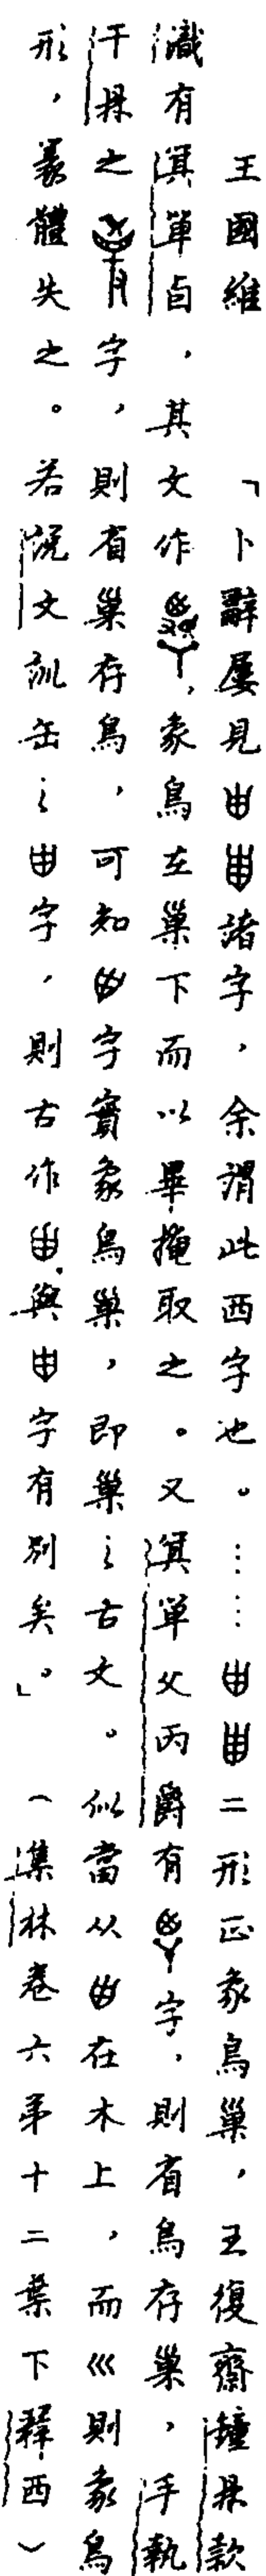 王國維　「卜辭屢見諸字，余謂此西字也。……二形正象鳥巢，王復齋鐘鼎款
識有箕單卣，其文作，象鳥在巢下而以畢掩取之。又箕單父丙爵有字，則省鳥存巢，手執
干鼎之字，則省巢存鳥，可知字實象鳥巢，即巢之古文。似當从在木上，而巛則象鳥
形，篆體失之。若說文訓缶之字，則古作與字有別矣。」　（集林卷六第十二葉下釋西）